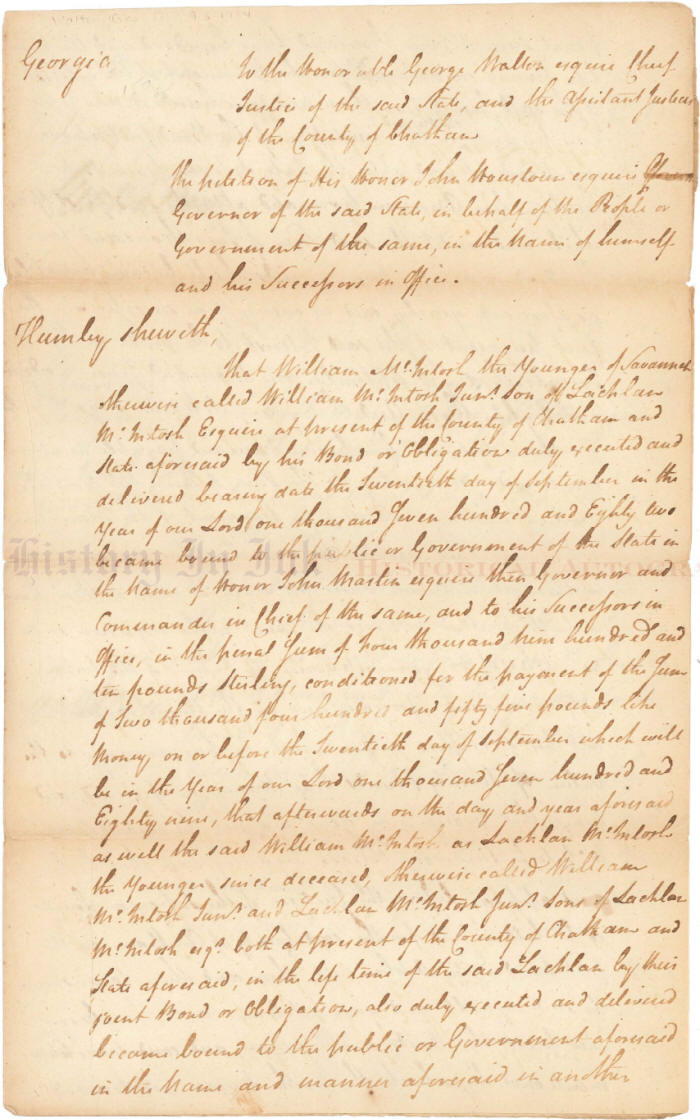 Georgia
To the Honorable George Walton esquire Chief
Justice of the said State, and the Assistant Justices
of the County of Chatham
The petition of His Honor John Houstoun esquire
Governor of the said State, in behalf of the People or
Government of the same, in the Name of himself
and his Successors in Office.
Humbly sheweth,
That William McIntosh the Younger of Savannah
otherwise called William McIntosh Junr. Son of Lachlan
McIntosh Esquire at present of the County of Chatham and
State aforesaid by his Bond or Obligation duly executed and
delivered bearing date the Twentieth day of September in the
Year of our Lord one thousand Seven hundred and Eighty two
became bound to the public or Government of the State in
the Name of Honor John Martin esquire then Governor and
Commander in Chief of the same, and to his Successors in
Office, in the penal Sum of Four thousand nine hundred and
ten pounds Sterling, conditioned for the payment of the Sum
of Two thousand four hundred and fifty five pounds like
Money, on or before the Twentieth day of September which will
be in the Year of our Lord one thousand Seven hundred and
Eighty nine, that afterwards on the day and year aforesaid
as well the said William McIntosh as Lachlan McIntosh
the Younger since deceased, otherwise called William
McIntosh Junr. and Lachlan McIntosh Junr. Sons of Lachlan
McIntosh esqr. both at present of the County of Chatham and
State aforesaid, in the life time of the said Lachlan by their
joint Bond or Obligation, also duly executed and delivered
became bound to the public or Government aforesaid
in the Name and manner aforesaid in another
History In Ink